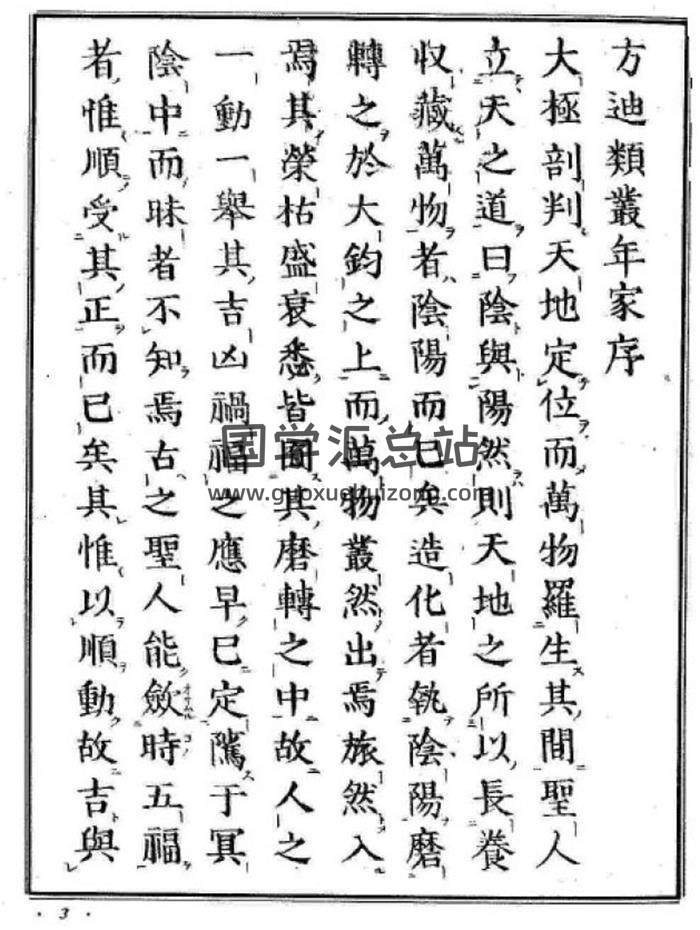 方迪類叢年家序
大極剖判天地定位而萬物羅生其間聖人
立天之道曰陰與陽然則天地之所以長養
収藏萬物者陰陽而已矣造化者執陰陽磨
轉之於大鈞之上而萬物叢然出焉旅然入
焉其榮枯盛衰悉皆囿其磨轉之中故人之
一動一舉其吉凶禍福之應早已定隲于冥
陰中而昧者不知焉古之聖人能歛時五福
者惟順受其正而已矣其惟以順動故吉與
国学汇总站
www.guoxuehuizong.com
· 3 ·